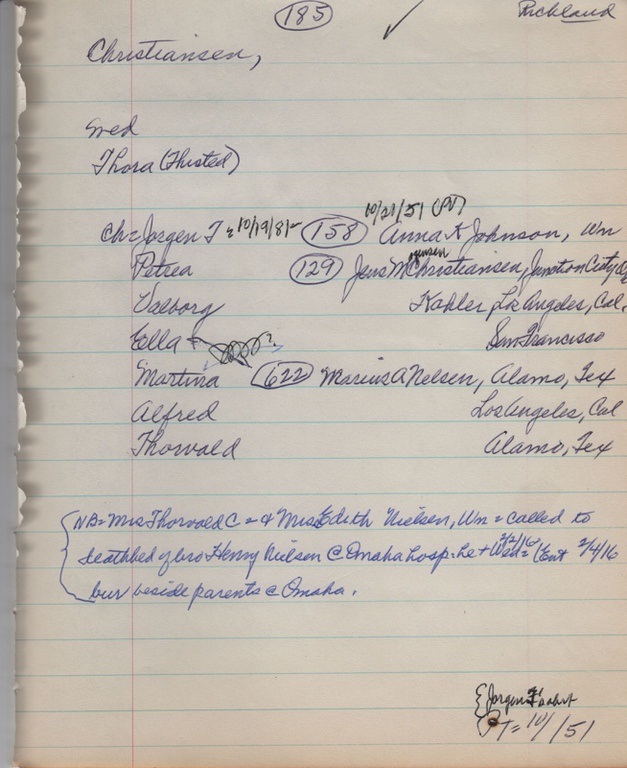 185 Richland
Christiansen,
med
Thora (Thisted)
10/21/51 (PV)
Ch= Jorgen T 158 Anna K Johnson, Wm
Petrea 129 Jens M Christiansen, Junction City, Or
Valborg Kahler, Los Angeles, Cal.
Ella San Francisco
Martina 622 Marius A Nelsen, Alamo, Tex
Alfred Los Angeles, Cal
Thorvald Alamo, Tex
NB= Mrs Thorvald C = & Miss Edith Nielsen, Wm = called to
deathbed of bro Henry Nielsen @ Omaha hosp. he + 2/2/16 (Ent 2/4/16
bur beside parents @ Omaha.
Jorgen
PT= 10/ /51